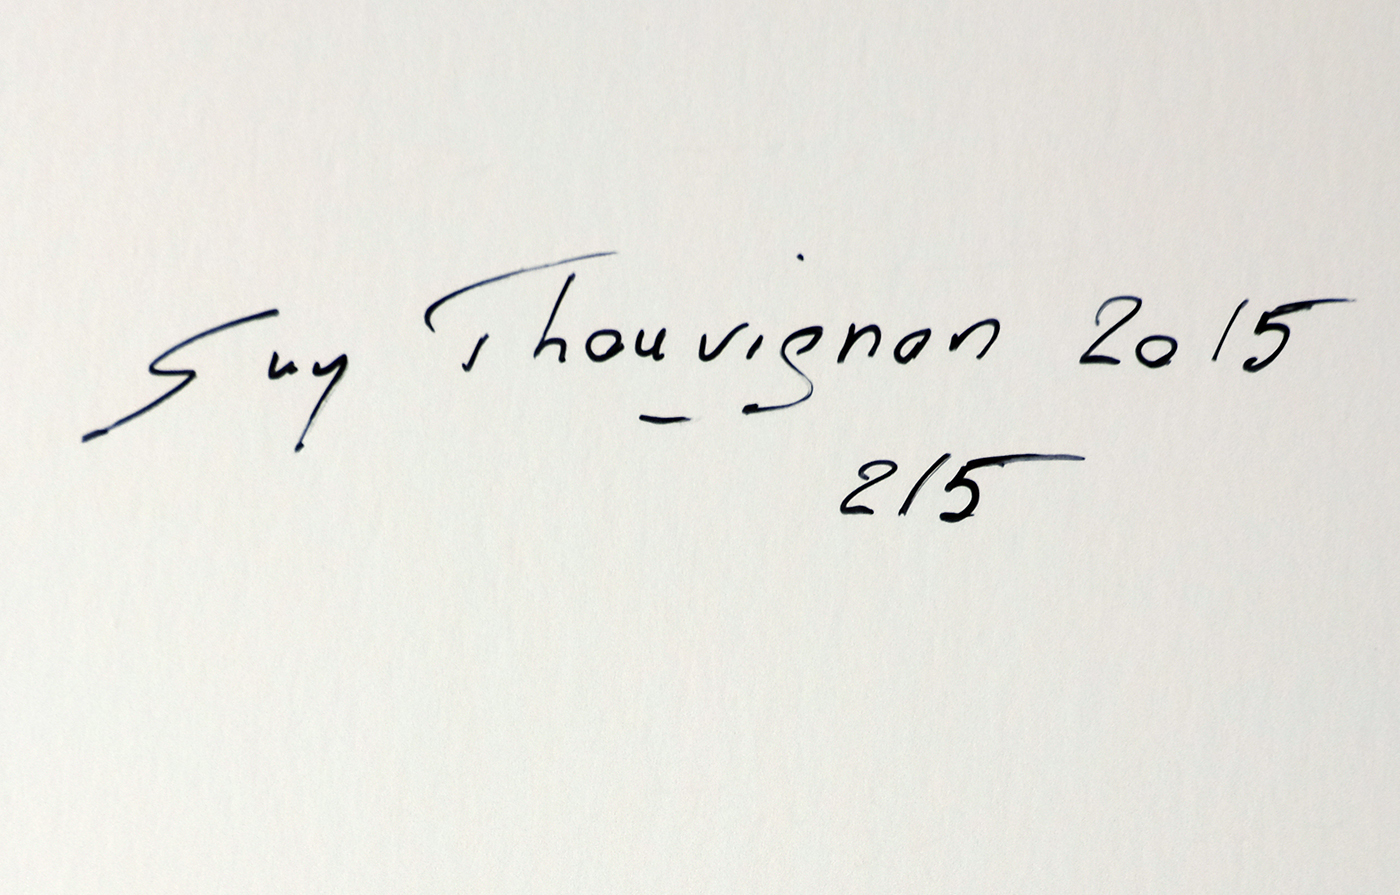 Guy Thouvignon 2015
2/5